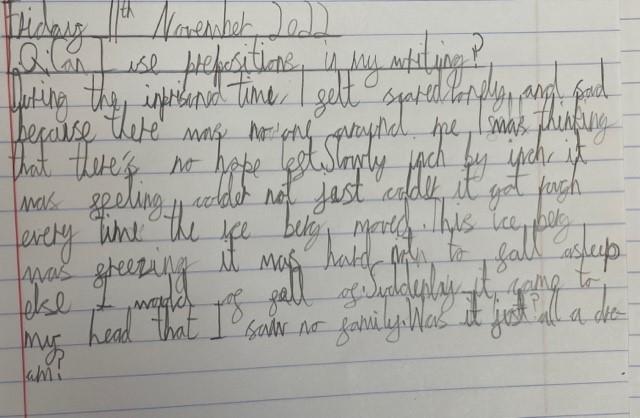 Friday 11th November 2022
Q:Can I use prepositions in my writing?
During the inprisoned time, I felt scared, lonely, and sad
because there was no one around me, I was thinking
that there's no hope left. Slowly inch by inch, it
was feeling colder not just colder it got rough
every time the ice berg moved. This ice berg
was freezing it was hard to fall asleep
else I would of fall of. Suddenlay it came to
my head that I saw no family. Was it just all a dre-
am?